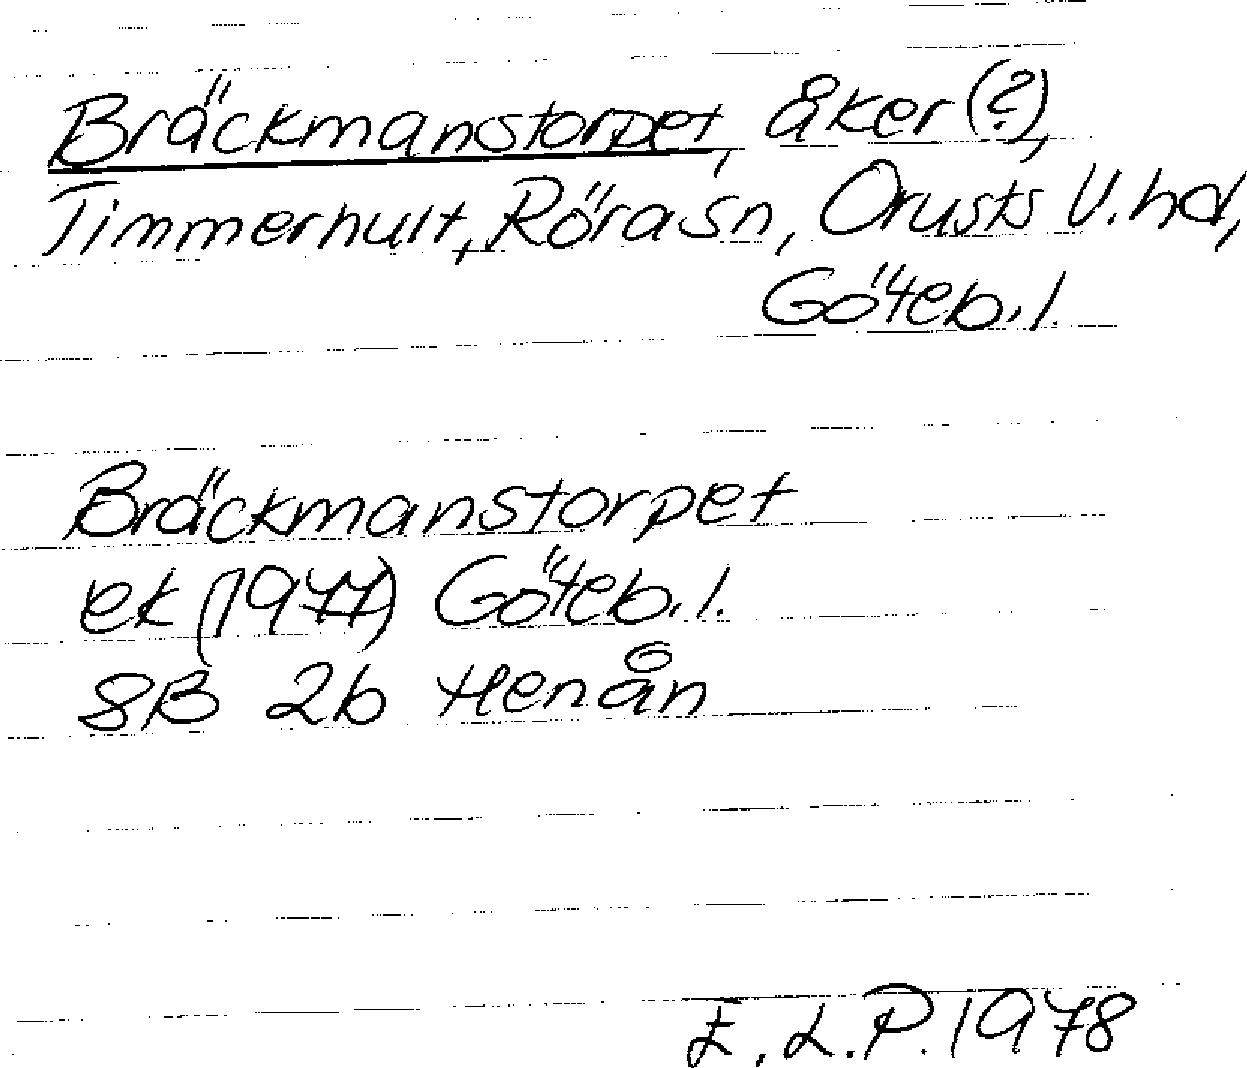 Bräckmanstorpet, åker (?),
Timmerhult, Röra sn, Orusts V. hd,
Göteb. l.
Bräckmanstorpet
ek (1977) Göteb. l.
8B 2b Henån
E. L. P. 1978